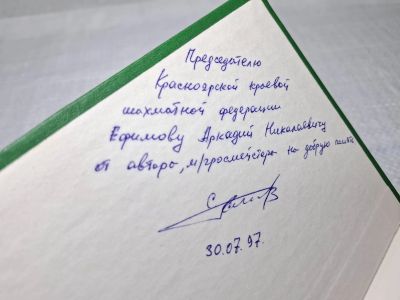 Председателю
Красноярской краевой
шахматной федерации
Ефимову Аркадию Николаевичу
от автора, м/гросмейстера на добрую память
30.07.97.